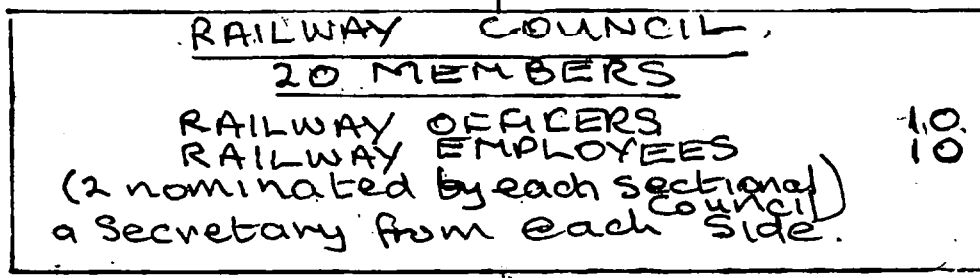 RAILWAY COUNCIL.
20 MEMBERS
RAILWAY OFFICERS 10.
RAILWAY EMPLOYEES 10
(2 nominated by each sectional
Council)
a Secretary from each Side.